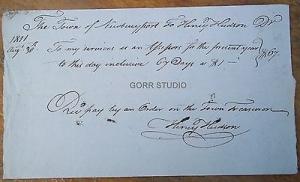 The Town of Newburyport to Henry Hudson Dr
1811
Augt
To my services as an Assessor for the present year
to this day inclusive 67 Days @ $1 —
$67
GORR STUDIO
Recd pay by an Order on the Town Treasurer
Henry Hudson